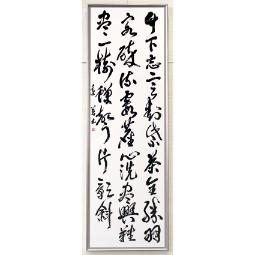 竹下忘言對紫茶全勝羽
客醉流霞塵心洗盡興難
盡一樹蟬聲片影斜